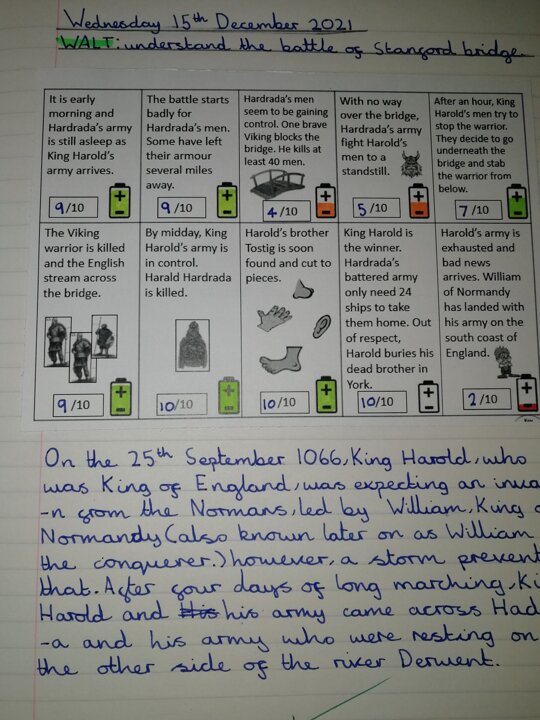 Wednesday 15th December 2021
WALT: understand the battle of Stanford bridge.
It is early
morning and
Hardrada's army
is still asleep as
King Harold's
army arrives.
9/10
The battle starts
badly for
Hardrada's men.
Some have left
their armour
several miles
away.
9/10
Hardrada's men
seem to be gaining
control. One brave
Viking blocks the
bridge. He kills at
least 40 men.
4/10
With no way
over the bridge,
Hardrada's army
fight Harold's
men to a
standstill.
5/10
After an hour, King
Harold's men try to
stop the warrior.
They decide to go
underneath the
bridge and stab
the warrior from
below.
7/10
The Viking
warrior is killed
and the English
stream across
the bridge.
9/10
By midday, King
Harold's army is
in control.
Harald Hardrada
is killed.
10/10
Harold's brother
Tostig is soon
found and cut to
pieces.
10/10
King Harold is
the winner.
Hardrada's
battered army
only need 24
ships to take
them home. Out
of respect,
Harold buries his
dead brother in
York.
10/10
Harold's army is
exhausted and
bad news
arrives. William
of Normandy
has landed with
his army on the
south coast of
England.
2/10
On the 25th September 1066, King Harold, who
was King of England, was expecting an inva
-n from the Normans, led by William, King
Normandy (also known later on as William
the conquerer.) however, a storm prevent
that. After four days of long marching, Ki
Harold and his his army came across Had
-a and his army who were resting on
the other side of the river Derwent.